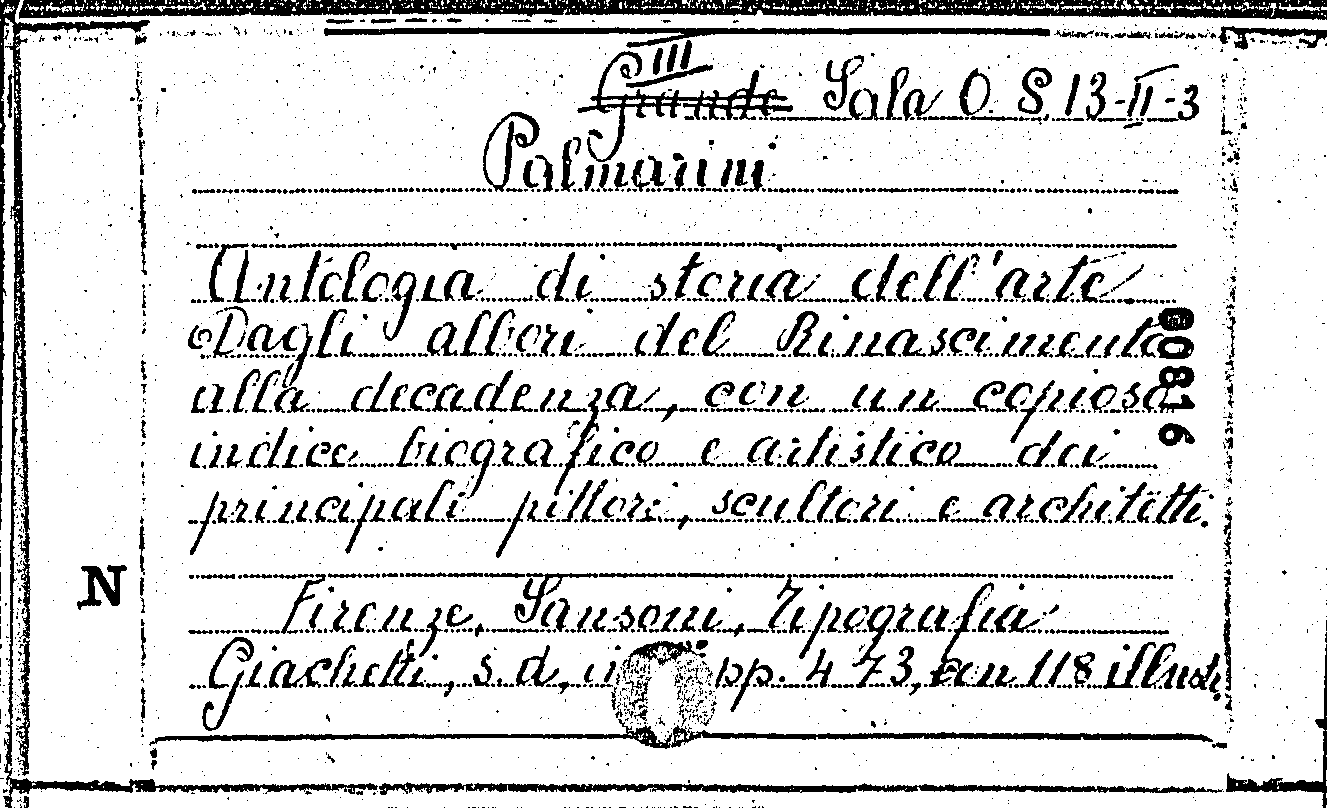 III
Grande Sala O. S. 13-II-3
Palmarini
Antologia di storia dell'arte.
Dagli albori del Rinascimento
alla decadenza, con un copioso
indice biografico e artistico dei
principali pittori, scultori e architetti.
N
Firenze, Sansoni, Tipografia
Giachetti, s. d., pp. 473, con 118 illustr.
00816